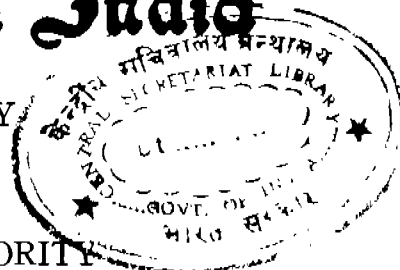 India
केन्द्रीय सचिवालय ग्रन्थालय
CENTRAL SECRETARIAT LIBRARY
Y
GOVT. OF INDIA
भारत सरकार
ORITY